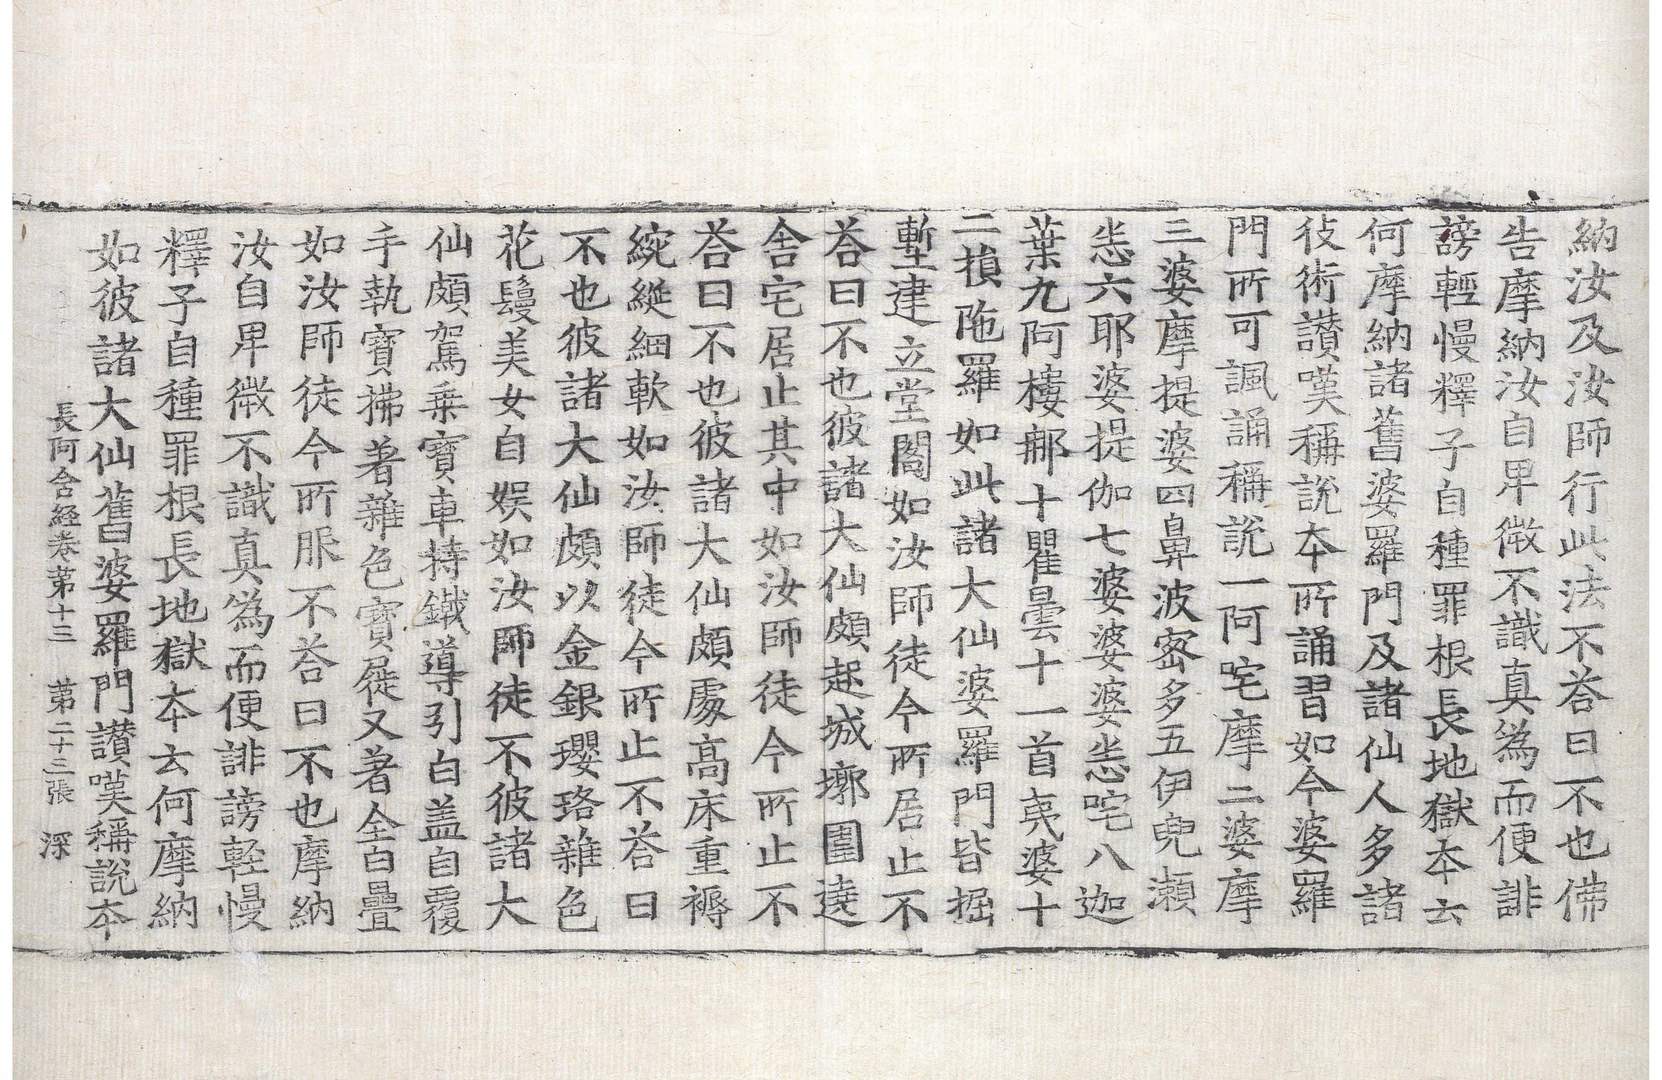 納汝及汝師行此法不荅曰不也佛
告摩納汝自卑微不識真爲而便誹
謗輕慢釋子自種罪根長長地獄本云
何摩納諸舊婆羅門及諸仙人多諸
伎術讃嘆稱說本所誦習如今婆羅
門所可諷誦稱說一阿咤摩二婆摩
三婆摩提婆四鼻波密多五伊兜瀬
恙六耶婆提伽七婆婆婆恙咤八迦
葉九阿樓那十瞿曇十一首夷婆十
二損陁羅如此諸大仙婆羅門皆掘
壍建立堂閣如汝師徒今所居止不
荅曰不也彼諸大仙頗起城墎圍遶
舍宅居止其中如汝師徒今所止不
荅曰不也彼諸大仙頗處高床重褥
綩綖細軟如汝師徒今所止不荅曰
不也彼諸大仙頗以金銀瓔珞雜色
花鬘美女自娛如汝師徒不彼諸大
仙頗駕乗寶車持鐵導引白盖自覆
手執寶拂著雜色寶屣又著全白疊
如汝師徒今所服不荅曰不也摩納
汝自卑微不識真爲而便誹謗輕慢
釋子自種罪根長地獄本云何摩納
如彼諸大仙舊婆羅門讃嘆稱說本
長阿含經卷苐十三 苐二十三張 深